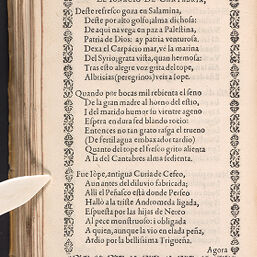 DE IGNACIO DE CANTABRIA,
Deste refresco goza en Salamina,
Deste por alto golfo, alma dichosa:
De aqui navega en paz a Palestina,
Patria de Dios: ay patria venturosa.
Dexa el Carpacio mar, vè la marina
Del Syrio; grata vista, quan hermosa:
Tras esto alegre voz grita del tope,
Albricias (peregrinos) veis a Iope.
Quando por bocas mil rebienta el seno
De la gran madre al horno del estio,
I del marido humor su vientre ageno
Espera en dura sed blando rocio:
Entonces no tan grato rasga el trueno
(De fertil agua embaxador tardio)
Quanto del tope el fresco grito alienta
A la del Cantabres alma sedienta.
Fue Iòpe, antigua Curia de Cefeo,
Aun antes del diluvio fabricada;
Alli el Peñasco està donde Perseo
Hallò a la triste Andromeda ligada,
Expuesta por las hijas de Nereo
Al pece monstruoso; i obligada
A quien, aunque la vio en elada peña,
Ardio por la bellissima Trigueña.
Agora